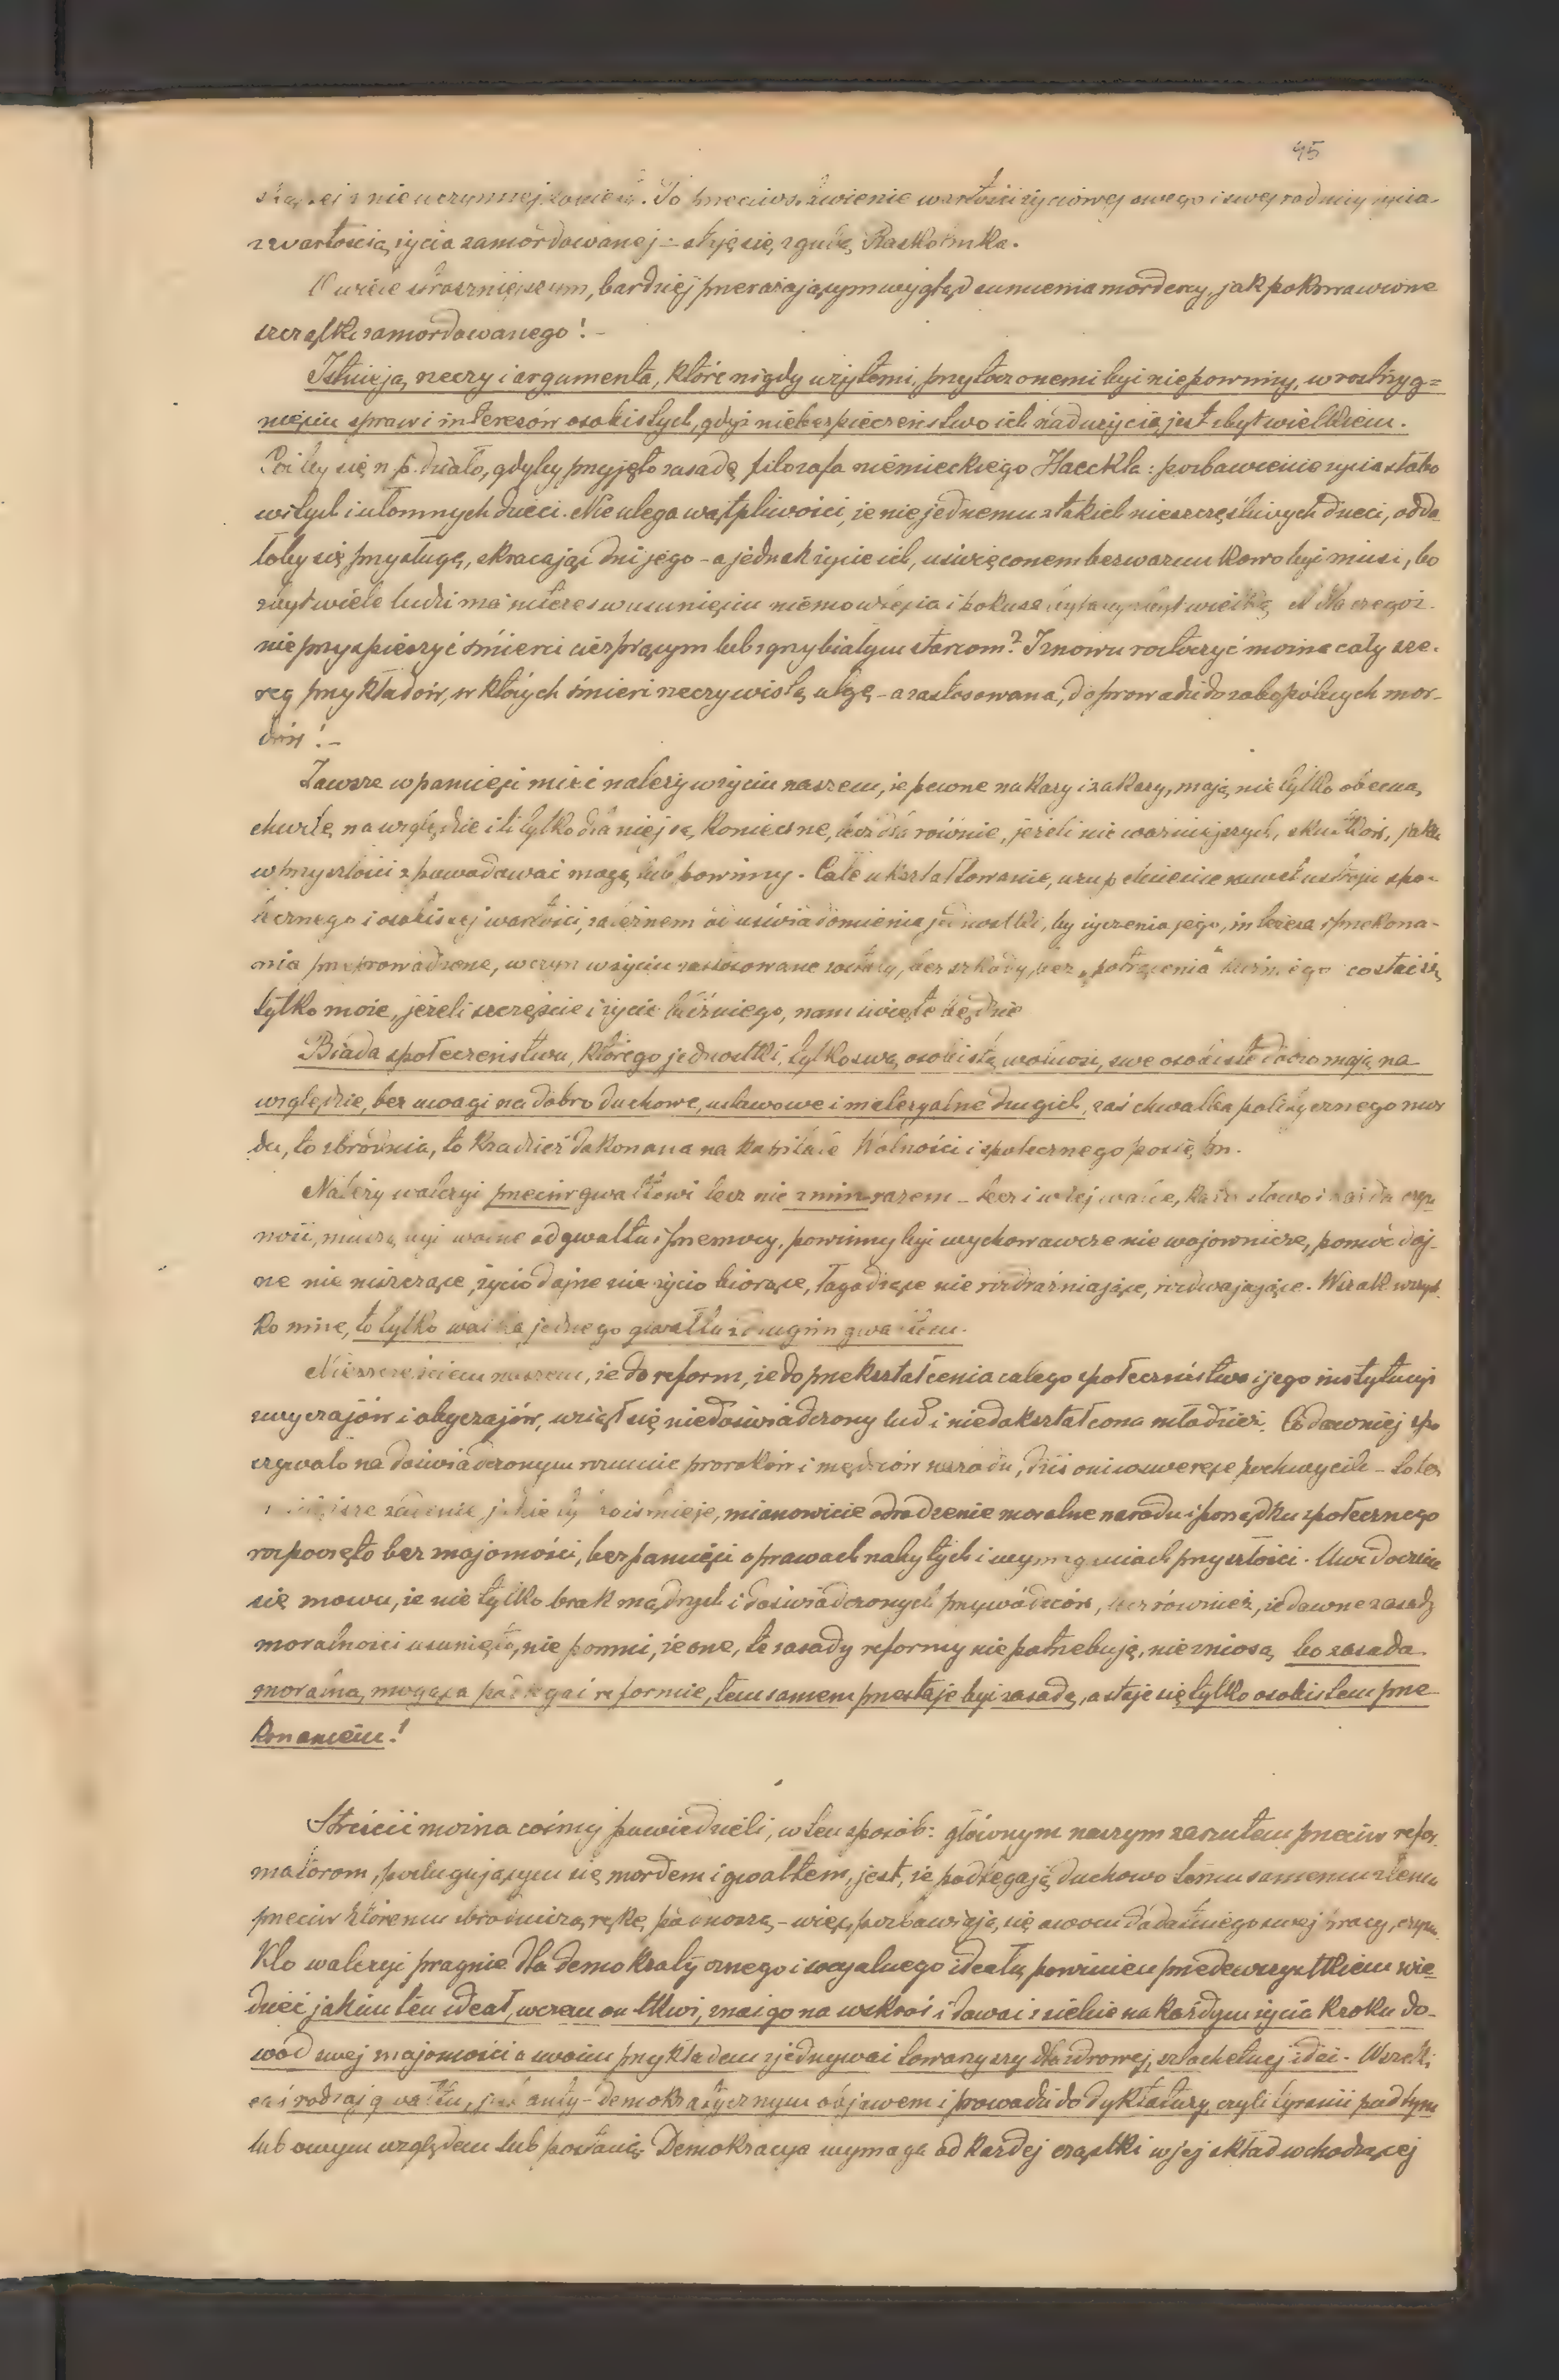 45
i nieuczynnej To przeciwstawienie wartości życiowej swego i swej rodziny życia
z wartością życia zamordowanej – staje się zgubą Raskolnika.
O wiele straszniejszym, bardziej przerażającym wygląd sumienia mordercy, jak pokrwawione
szczątki zamordowanego! –
Istnieją rzeczy i argumenta, które nigdy użytemi, przytoczonemi być nie powinny, w rozstrzyg=
nięciu spraw i interesów osobistych, gdyż niebezpieczeństwo ich nadużycia jest zbyt wielkiem.
by się n.p. działo, gdyby przyjęto zasadę filozofa niemieckiego Haeckla: pozbawienie życia słabo
witych i ułomnych dzieci. Nie ulega wątpliwości, że niejednemu z takich nieszczęśliwych dzieci, odda
łoby się przysługę, skracając dni jego – a jednak życie ich, uświęconem bezwarunkowo być musi, bo
zbyt wiele ludzi ma interes w usunięciu niemowlęcia i pokusa byłaby zbyt wielką Dla czegóż
nie przyspieszyć śmierci cierpiącym lub zgrzybiałym starcom? I znowu roztoczyć można cały sze-
reg przykładów, w których śmierć rzeczywistą ulgą – a zastosowana, doprowadzi do zabopólnych mor-
dów! –
Zawsze w pamięci mieć należy w życiu naszem, że pewne nakazy i zakazy, mają nie tylko obecną
chwilę na względzie i li tylko dla niej są konieczne, lecz dla równie, jeżeli nie ważniejszych, skutków, jakie
w przyszłości spowodować mogą lub powinny. Całe ukształtowanie, uzupełnienie nawet ustroju spo-
łecznego i osobistej wartości, zależnem od uświadomienia jednostki, by życzenia jego, interesa i przekona-
nia przeprowadzone, w czyn w życiu zastosowane zostały, bez szkody, bez „potrącenia" bliźniego co stać się
tylko może, jeżeli szczęście i życie bliźniego, nam święte będzie
Biada społeczeństwu, którego jednostki, tylko swą osobistą wolność, swe osobiste dobro mają na
względzie, bez uwagi na dobro duchowe, ustawowe i materyalne drugich, zaś chwalba politycznego mor
du, to zbrodnia, to kradzież dokonana na kapitale Wolności i społecznego postępu.
Należy walczyć przeciw gwałtowi lecz nie z nim razem – lecz i w tej walce, każde słowo i każda czyn
ność, muszą być wolne od gwałtu i przemocy, powinny być wychowawcze nie wojownicze, pomóc daj-
ne nie niszczące, życiodajne nie życiobiorące, łagodzące nie rozdrażniające, rozdwajające. Wszak wszyst
ko inne, to tylko walka jednego gwałtu z drugim gwałtem.
Nieszczęściem naszem, że do reform, że do przekształcenia całego społeczeństwa i jego instytucyi
zwyczajów i obyczajów, wziął się niedoświadczony lud i niedokształcona młodzież. Co dawniej spo
czywało na doświadczonym rozumie proroków i mędrców narodu, dziś oni w swe ręce pochwycili –
zadanie jakie istnieje, mianowicie odrodzenie moralne narodu i porządku społecznego
rozpoczęto bez znajomości, bez pamięci o prawach nabytych i wymaganiach przyszłości. Uwidocznia
się znowu, że nie tylko brak mądrych i doświadczonych przywódców, lecz również, że dawne zasady
moralności usunięto, nie pomni, że one, te zasady reformy nie potrzebują, nie zniosą bo zasada
moralna, mogąca podlegać reformie, tem samem przestaje być zasadą, a staje się tylko osobistem prze
konaniem!
Streścić można cośmy powiedzieli, w ten sposób: głównym naszym zarzutem przeciw refor
matorom, posługującym się mordem i gwałtem, jest, że podlegają duchowo temu samemu złemu
przeciw któremu zbrodniczą rękę podnoszą – więc pozbawiają się owocu dodatniego swej pracy, czynu.
Kto walczyć pragnie dla demokratycznego i socyalnego ideału, powinien przedewszystkiem wie
dzieć jakim ten ideał, w czem on tkwi, znać go na wskroś i dawać z siebie na każdym życia kroku do-
wód swej znajomości a swoim przykładem zjednywać towarzyszy dla zdrowej, szlachetnej idei. Wszelki
rodzaj gwałtu, jest anty-demokratycznym objawem i prowadzi do dyktatury, czyli tyranii pod tym
lub owym względem lub postacią. Demokracya wymaga od każdej cząstki w jej skład wchodzącej